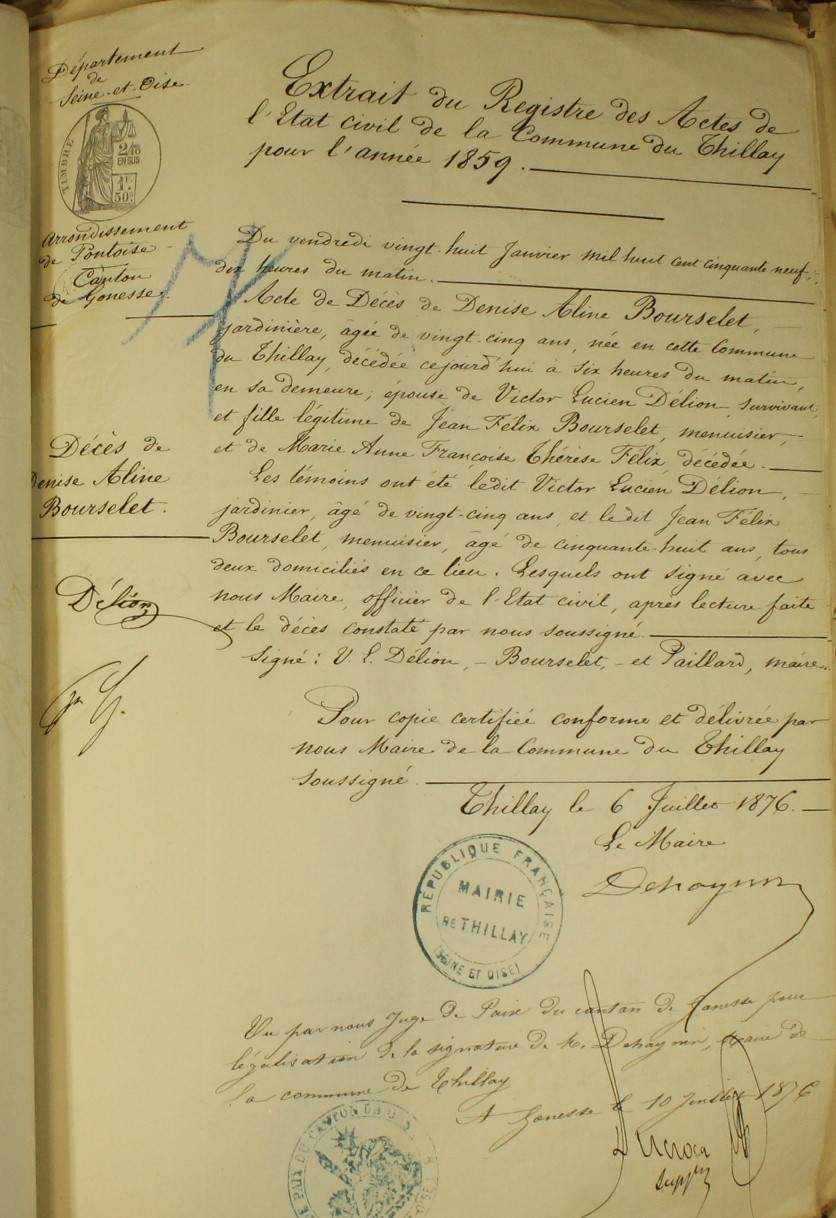 Département
de
Seine-et-Oise
TIMBRE
2/10
EN SUS
1F.
50c
Arrondissement
de Pontoise
Canton
de Gonesse.
Extrait du Registre des Actes de
l'Etat civil de la Commune du Thillay
pour l'année 1859.
Du vendredi vingt-huit Janvier mil huit cent cinquante neuf,
dix heures du matin.
Acte de Décès de Denise Aline Bourselet,
jardinière, âgée de vingt-cinq ans, née en cette Commune
du Thillay, décédée cejourd'hui à six heures du matin,
en sa demeure; épouse de Victor Lucien Délion, survivant,
et fille légitime de Jean Félix Bourselet, menuisier,
et de Marie Anne Françoise Thérèse Félix, décédée.
Décès de
Denise Aline
Bourselet.
Les témoins ont été ledit Victor Lucien Délion,
jardinier, âgé de vingt-cinq ans, et le dit Jean Félix
Bourselet, menuisier, agé de cinquante-huit ans, tous
deux domiciliés en ce lieu. Lesquels ont signé avec
nous Maire, officier de l'Etat civil, après lecture faite
et le décès constaté par nous soussigné.
Signé: V. L. Délion, - Bourselet, - et Paillard, maire.
Délion
Pour copie certifiée conforme et délivrée par
nous Maire de la Commune du Thillay
soussigné.
Thillay le 6 Juillet 1876.
Le Maire
Dehaynin
RÉPUBLIQUE FRANÇAISE
MAIRIE
DE THILLAY
(SEINE ET OISE)
Vu par nous Juge de Paix du canton de Gonesse pour
légalisation de la signature de M. Dehaynin, Maire de
la commune de Thillay
A Gonesse le 10 Juillet 1876
suppt
DE PAIX DU CANTON DE